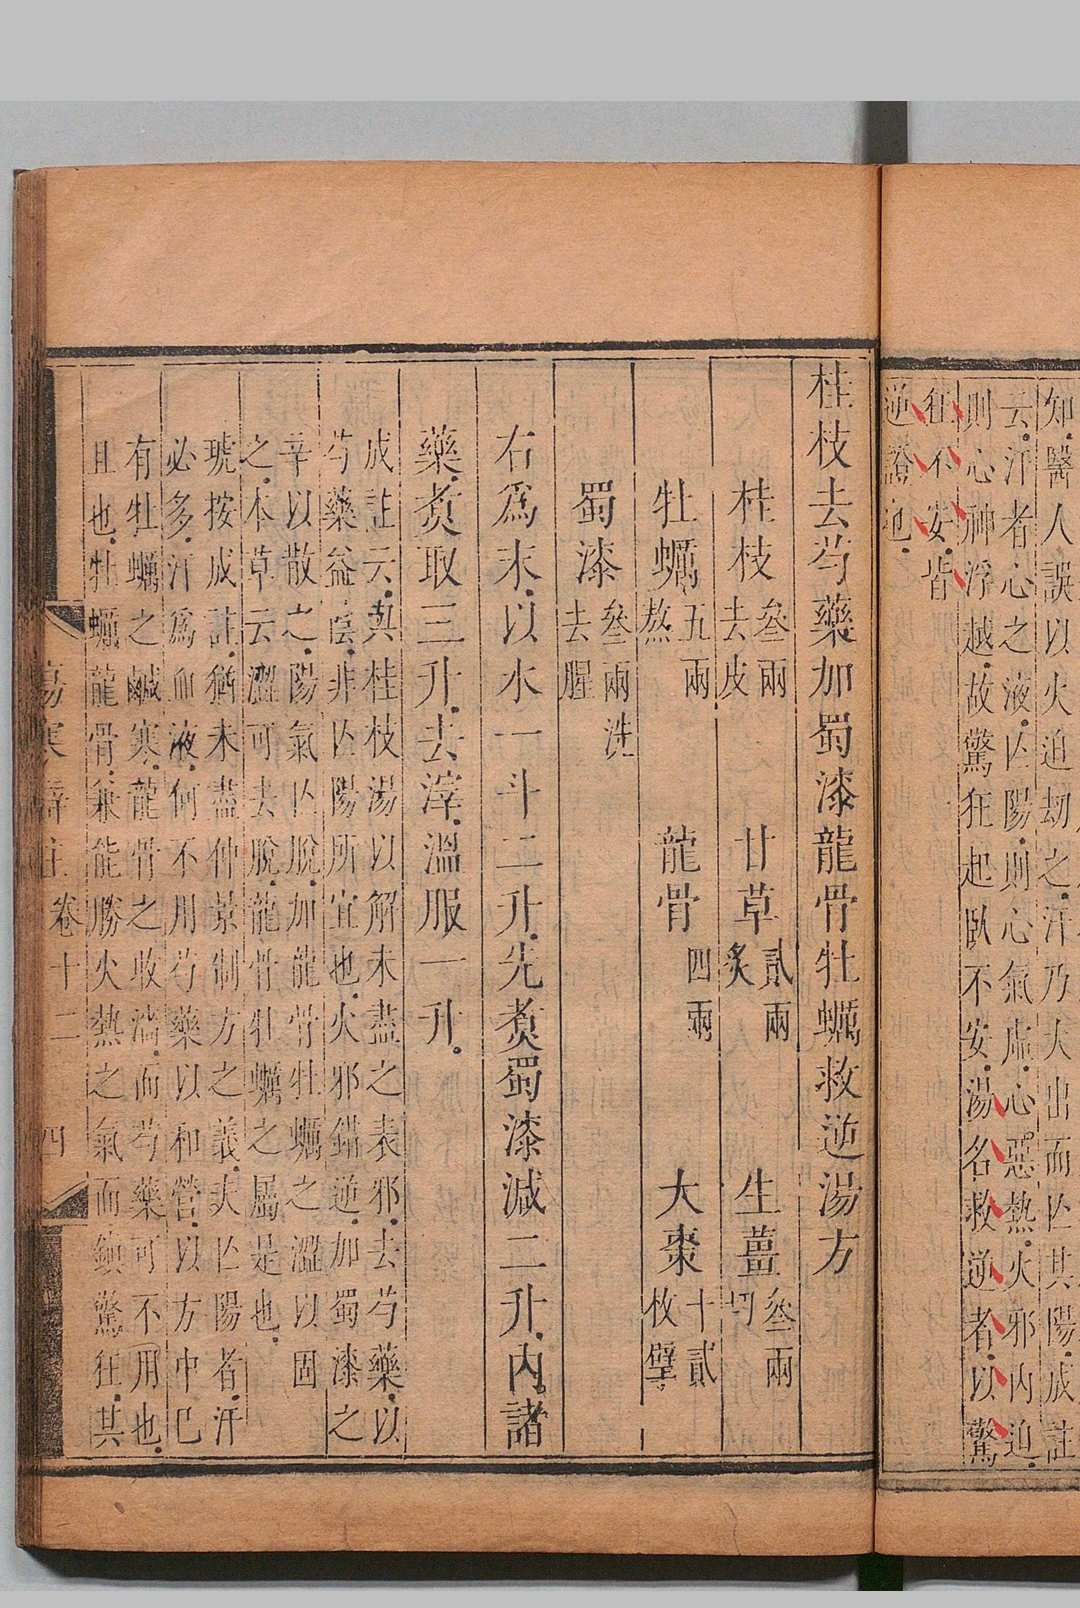 知醫人誤以火迫劫之汗乃大出而亾其陽成註
云汗者心之液亾陽則心氣虛心惡熱火邪内迫
則心神浮越故驚狂起臥不安湯名救逆者以驚
狂不安皆
逆證也
桂枝去芍藥加蜀漆龍骨牡蠣救逆湯方
桂枝 叄兩去皮 甘草 貳兩炙 生薑 叄兩切
牡蠣 五兩熬 龍骨 四兩 大棗 十貳枚擘
蜀漆 叄兩洗去腥
右爲末以水一斗二升先煑蜀漆減二升内諸
藥煑取三升去滓溫服一升
成註云與桂枝湯以解未盡之表邪去芍藥以
芍藥益陰非亾陽所宜也火邪錯逆加蜀漆之
辛以散之陽氣亾脫加龍骨牡蠣之澀以固
之本草云澀可去脫龍骨牡蠣之屬是也
琥按成註猶未盡仲景制方之義夫亾陽者汗
必多汗爲血液何不用芍藥以和營以方中已
有牡蠣之鹹寒龍骨之收濇而芍藥可不用也
且也牡蠣龍骨兼能勝火熱之氣而鎮驚狂其
傷寒辯註 卷十二 四